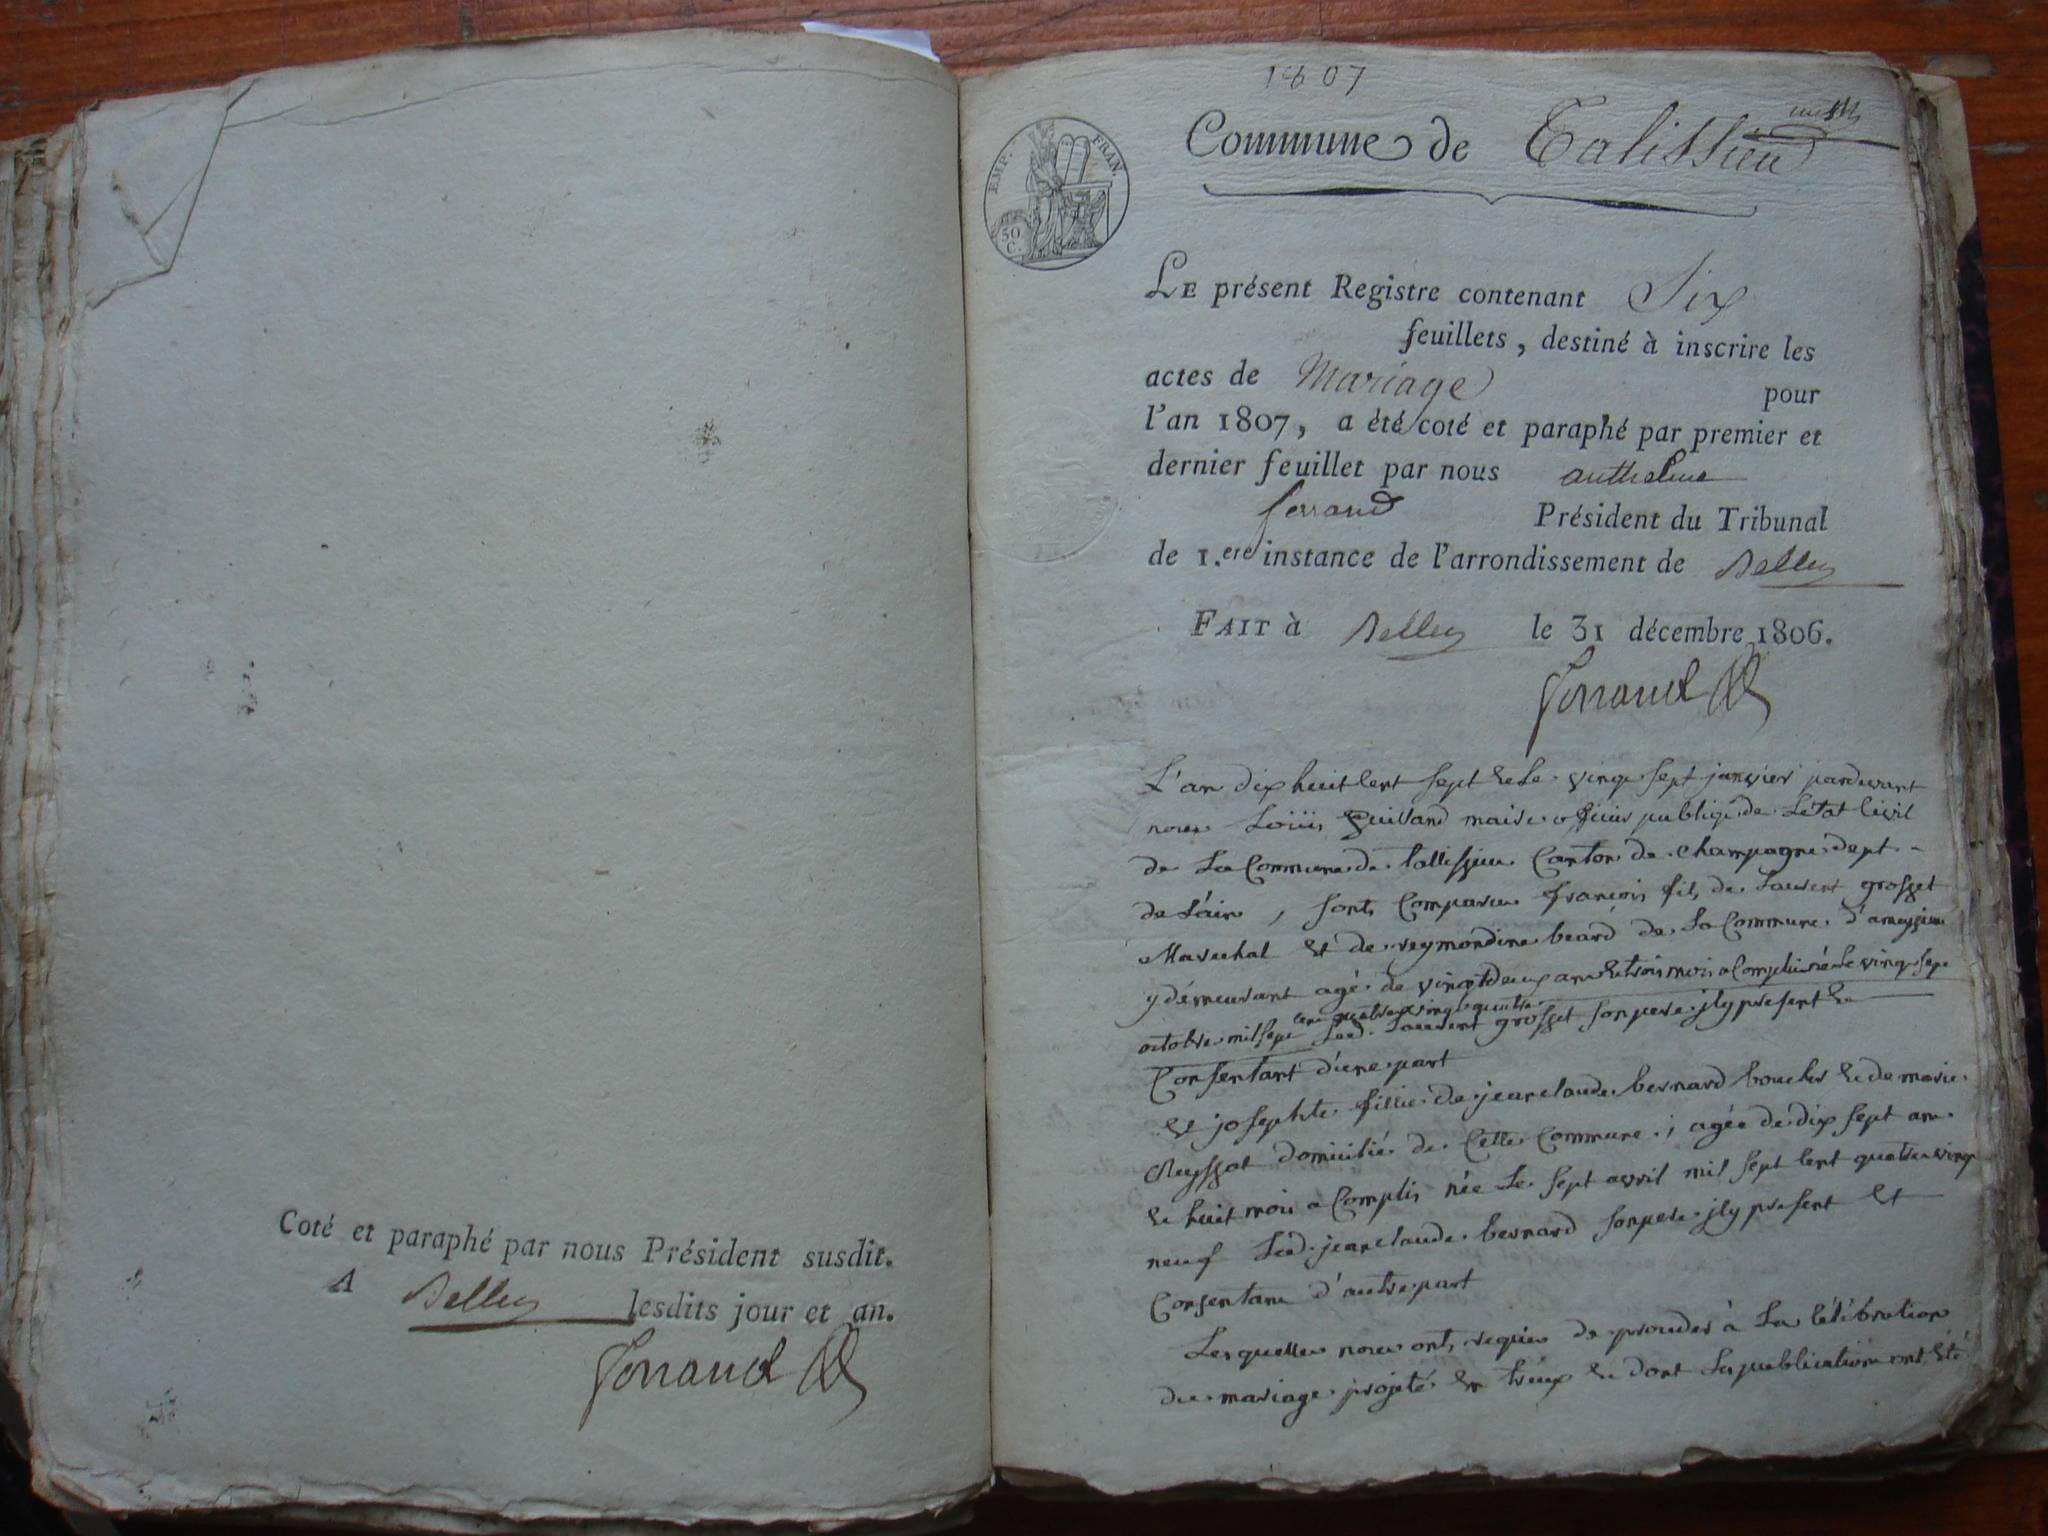 Coté et paraphé par nous Président susdit.
A Belley lesdits jour et an.
Ferrand
1807
Commune de Talissieu
EMP. FRAN.
50
C.
LE présent Registre contenant Six
feuillets, destiné à inscrire les
actes de Mariage pour
l'an 1807, a été coté et paraphé par premier et
dernier feuillet par nous anthelme
ferrand Président du Tribunal
de 1.ere instance de l'arrondissement de Belley
FAIT à Belley le 31 décembre 1806.
Ferrand
L'an dix huit cent sept & le vingt sept janvier pardevant
nous Loüis Guilland maire officier publiq de Letat Civil
de La Commune de tallissieu Canton de champagne dept
de L'ain, sont Comparu françois fils de Laurent grosset
Marechal et de reymondine béard de La Commune d'ameyzieu
y démeurant agé de vingt deux ans & trois mois acomplis né le vingt sept
octobre mil sept cent quatre vingt quatre Led. Laurent grosset son pere jcy présent &
Consentant d'une part
& josephte fillie de jean claude bernard boucher & de marie
Reyssat domicilié de Cette Commune, agée de dix sept ans
& huit mois acomplis née Le sept avril mil sept cent quatre vingt
neuf Led. jean claude bernard son pere jcy présent et
Consentant d'autre part
Lesquelles nous ont requis de proceder à La Célébration
du mariage projeté entreux & dont Les publications ont été